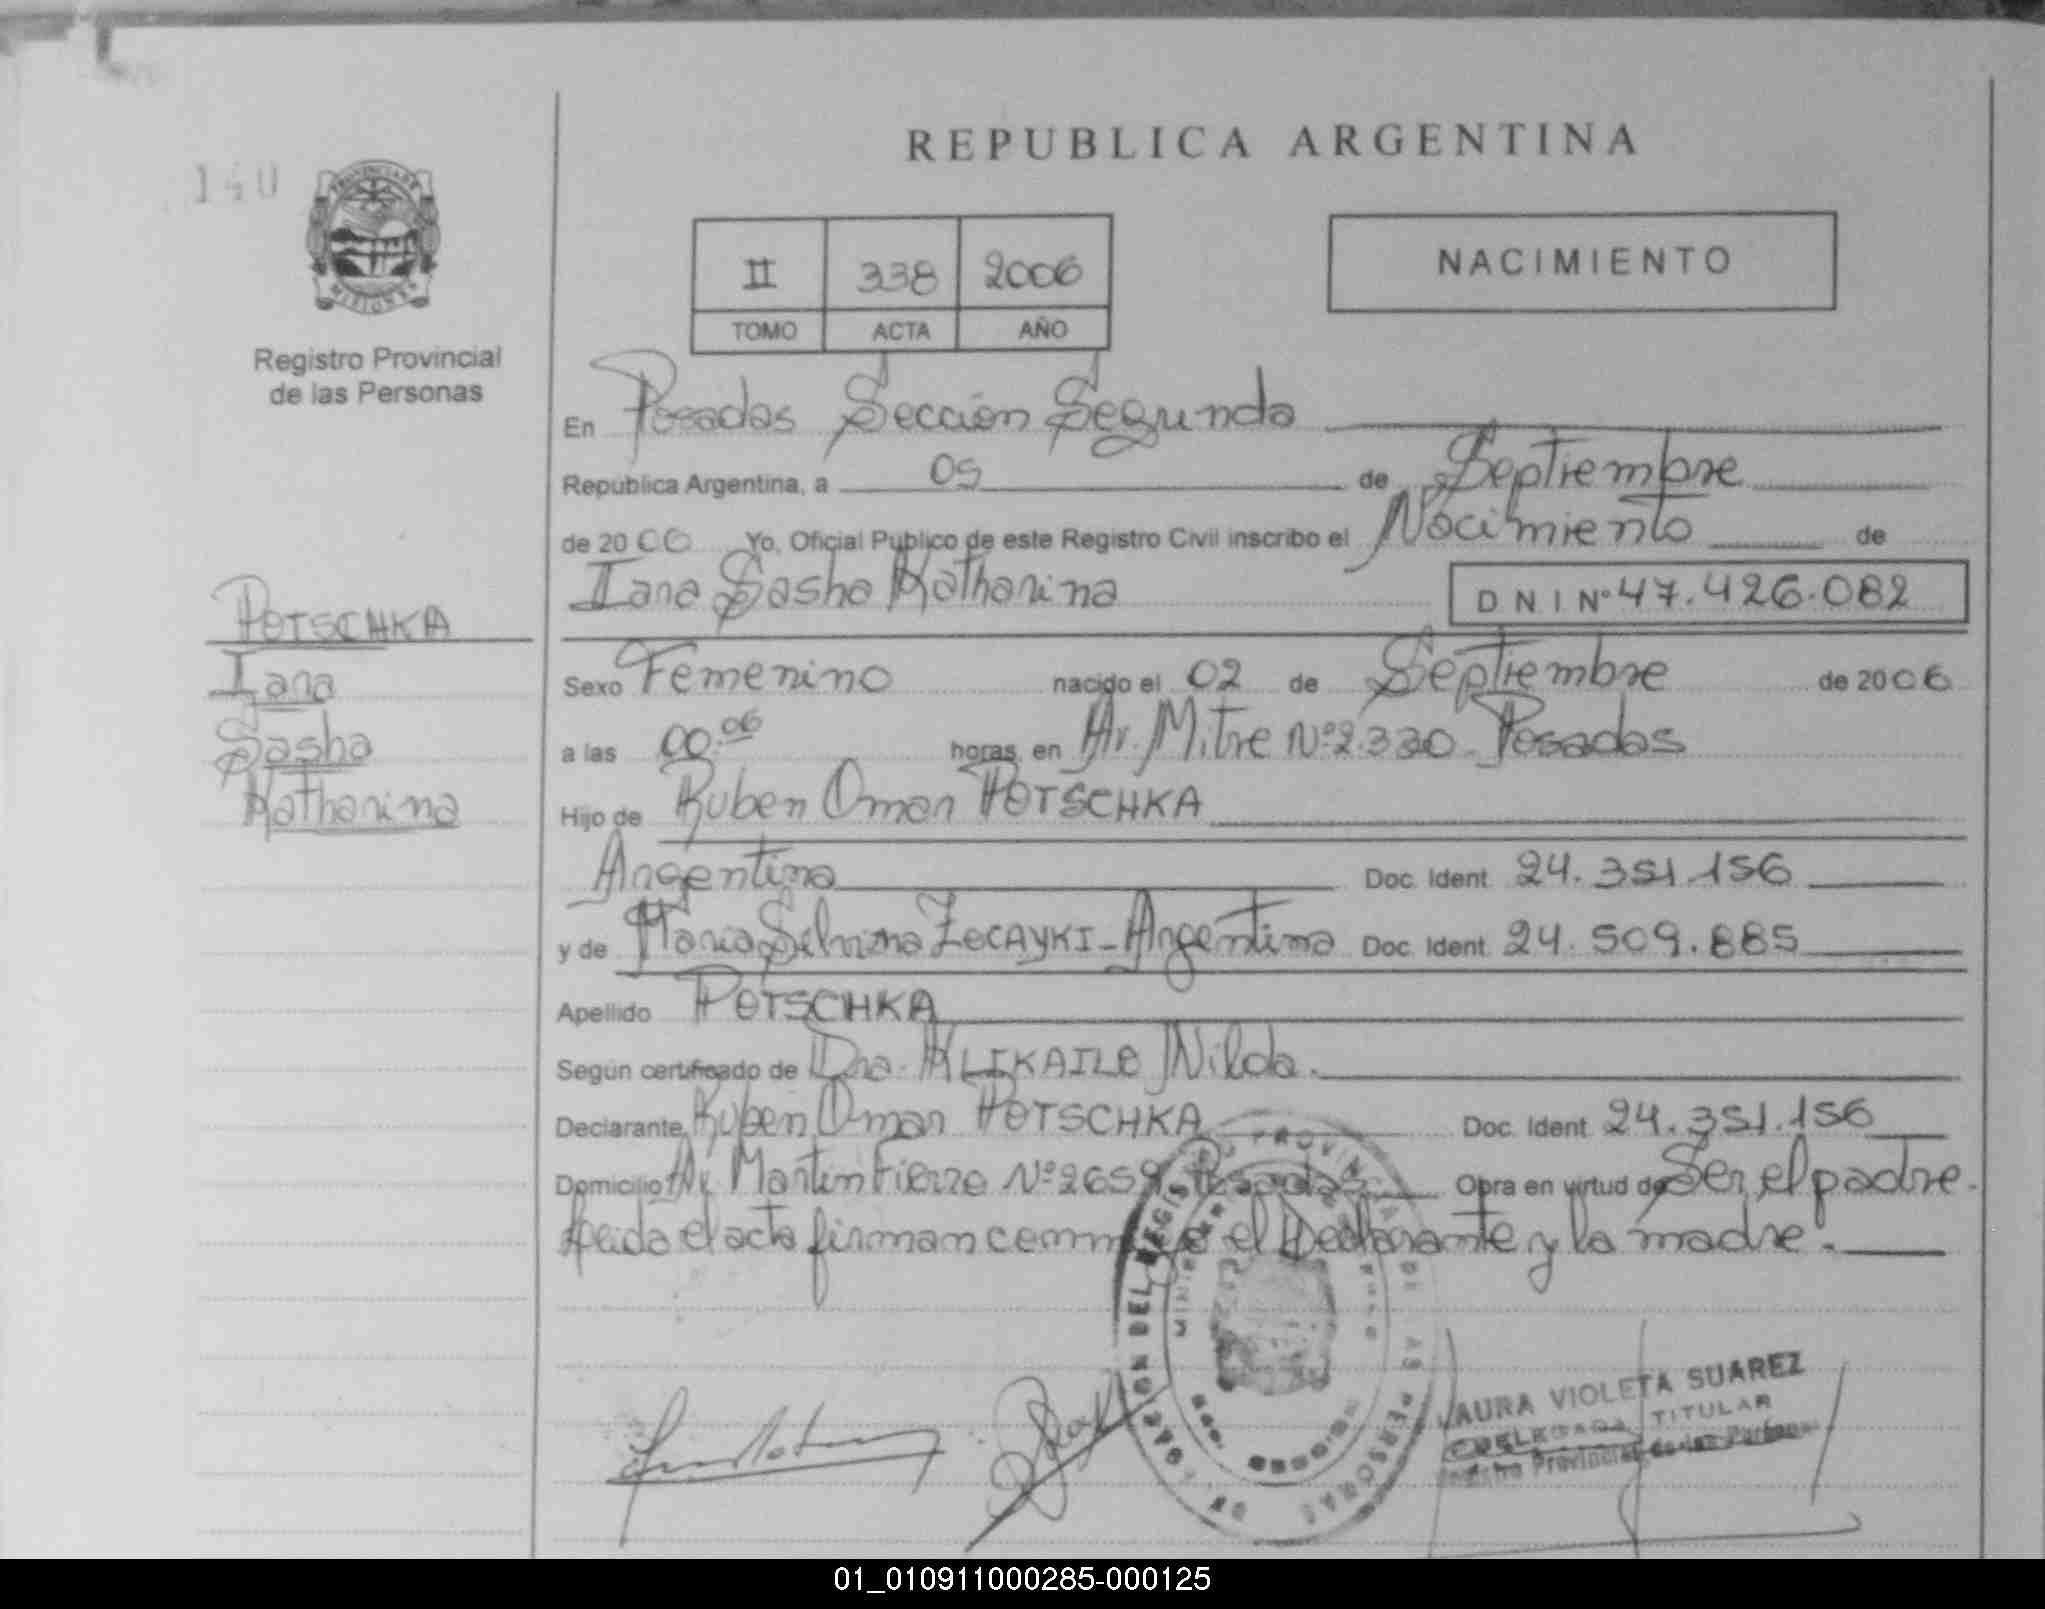 REPUBLICA ARGENTINA
140
PROVINCIA DE
MISIONES
Registro Provincial
de las Personas
II 338 2006
TOMO ACTA AÑO
NACIMIENTO
En Posadas Sección Segunda
República Argentina, a 05 de Septiembre
de 2006 Yo, Oficial Público de este Registro Civil inscribo el Nacimiento de
Iana Sasha Katharina DNI Nº 47.426.082
POTSCHKA
Iana
Sasha
Katharina
Sexo Femenino nacido el 02 de Septiembre de 2006
a las 00:06 horas, en Av. Mitre Nº 2.330 - Posadas
Hijo de Ruben Omar POTSCHKA
Argentina Doc. Ident. 24.351.156
y de Maria Selvina ZOCAYKI - Argentina Doc. Ident. 24.509.885
Apellido POTSCHKA
Según certificado de Dra. KLIKAILO Nilda.
Declarante Ruben Omar POTSCHKA Doc. Ident. 24.351.156
Domicilio Av. Martin Fierro Nº 2659 Posadas Obra en virtud de Ser el padre.
Leida el acta firman conmigo el Declarante y la madre.
LAURA VIOLETA SUAREZ
TITULAR
Registro Provincial de las Personas
01_010911000285-000125